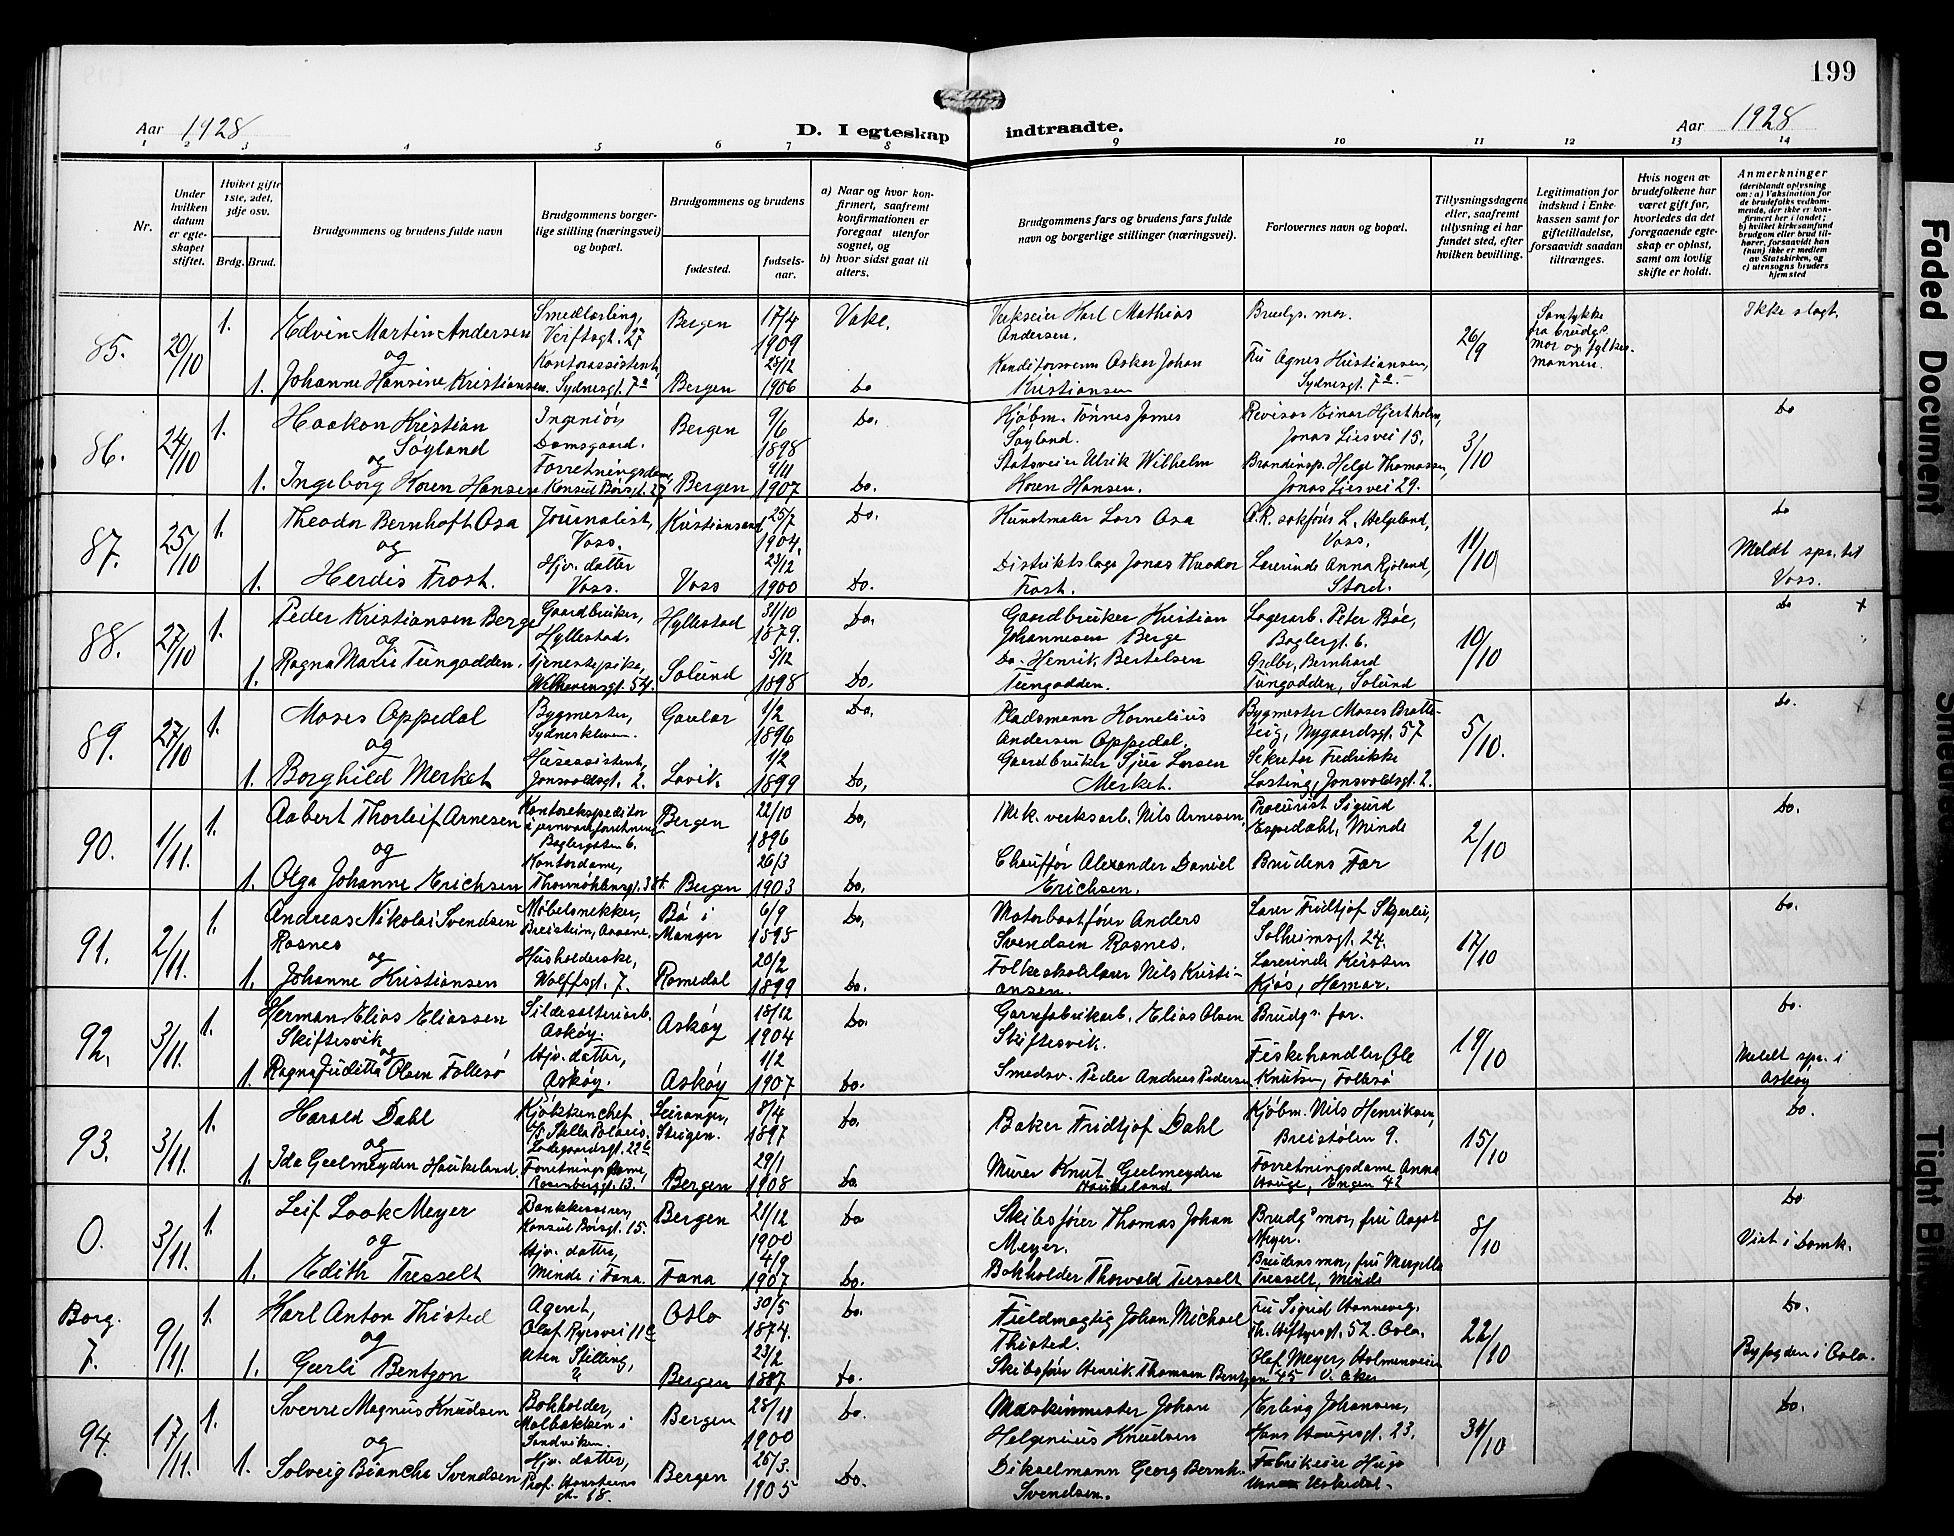 199
Aar 1928
D. I egteskap indtraadte.
Aar 1928
1 2 3 4 5 6 7 8 9 10 11 12 13 14
Nr.
Under hvilken datum er egteskapet stiftet.
Hviket gifte 1ste, 2det, 3dje osv.
Brdg. Brud.
Brudgommens og brudens fulde navn
Brudgommens borgerlige stilling (næringsvei) og bopæl.
Brudgommens og brudens
fødested.
fødselsaar.
a) Naar og hvor konfirmert, saafremt konfirmationen er foregaat utenfor sognet, og
b) hvor sidst gaat til alters.
Brudgommens fars og brudens fars fulde navn og borgerlige stillinger (næringsvei).
Forlovernes navn og bopæl.
Tillysningsdagene eller, saafremt tillysning ei har fundet sted, efter hvilken bevilling.
Legitimation for indskud i Enkekassen samt for giftetilladelse, forsaavidt saadan tiltrænges.
Hvis nogen av brudefolkene har været gift før, hvorledes da det foregaaende egteskap er opløst, samt om lovlig skifte er holdt.
Anmerkninger
(deriblandt oplysning om: a) Vaksination for de brudefolks vedkommende, der ikke er konfirmert her i landet; b) hvilket kirkesamfund brudgom eller brud tilhører, forsaavidt han (hun) ikke er medlem av Statskirken, og c) utensogns bruders hjemsted
85. 20/10 1. Edvin Martin Andersen Smedlærling, Verftsgt. 27 Bergen 17/4 1909 Vake. Andersen. Brudgs. mor. 26/9 Samtykke fra brudgs. mor og fylkesmannen. Ikke slegt.
og
1. Johanne Hansine Kristiansen Kontorassistent, Sydnesgt. 7a Bergen 28/12 1906 Do Konditorsvenn Oskar Johan Kristiansen Fru Agnes Kristiansen, Sydnesgt. 7a
86. 24/10 1. Haakon Kristian Søyland Ingeniør Damsgaard. Bergen 9/6 1898 Do. Kjøbm. Tønnes James Søyland. Revisor Einar Hjertholm, Jonas Liesvei 15. 3/10 Do
og
1. Ingeborg Koren Hansen Forretningsdame, Konsul Børsgt. 27 Bergen 9/11 1907 Do. Ulrik Wilhelm Koren Hansen. Brandinsp. Helge Thomassen, Jonas Liesvei 29.
87. 25/10 1. Theodor Bernhoft Osa Journalist, Voss. Kristiansand 25/7 1904. Do. Kunstmaler Lars Osa O.R. sakfører L. Helgeland, Voss. 11/10 Do
og
1. Herdis Frost. Hjv. datter Voss. Voss 23/12 1900 Do. Distriktslæge Jonas Theodor Frost. Lærerinde Anna Rjoland, Stord. Meldt spr. til Voss.
88. 27/10 1. Peder Kristiansen Berge Gaardbruker, Hyllestad. Hyllestad 31/10 1879. Do. Gaardbruker Kristian Johannesen Berge Lagerarb. Peter Bøe, Baglergt. 6. 10/10 Do +
og
1. Ragna Marie Tungodden. Tjenestepike, Welhavensgt. 54. Solund 5/12 1898 Do. Do. Henrik Bertelsen Tungodden. Bernhard Tungodden, Solund
89. 27/10 1. Moses Oppedal Bygmester, Sydneskleven. Gaular 1/2 1896 Do. Pladsmann Kornelius Andersen Oppedal. Bygmester Moses Bratteteig, Nygaardsgt. 57 5/10. Do.
og
1. Borghild Merket Husassistent, Jonsvoldsgt. 2. Lavik 1/2 1899 Do. Gaardbruker Sjur Larsen Merket. Sekretær Fredrikke Lasting, Jonsvoldsgt. 2.
90. 1/11. 1. Aabert Thorleif Arnesen Kontorekspeditør i jernvareforretning Baglergaten 6. Bergen 22/10 1896 Do. Mek. verksarb. Nils Arnesen, Procurist Sigurd Espedahl, Minde 2/10 Do.
og
1. Olga Johanne Erichsen Kontordame, Thormøhlensgt. 38 Bergen 26/3 1903 Do. Chauffør Alexander Daniel Erichsen. Brudens Far
91. 2/11. 1. Andreas Nikolai Svendsen Rosnes Møbelsnekker, Breistein, Aasane. Bø i Manger 6/9 1895 Do. Motorbaatfører Anders Svendsen Rosnes. Lærer Fridtjof Skjerlie, Solheimsgt. 24. 17/10 Do.
og
1. Johanne Kristiansen Husholderske, Wolffsgt. 7. Romedal 20/2 1899 Do. Folkeskolelærer Nils Kristiansen. Lærerinde Kirsten Kjos, Hamar.
92. 3/11. 1. Herman Elias Eliassen Skiftesvik Sildesalteriarb. Askøy. Askøy 18/12 1904 Do. Garnfabrikarb. Elias Olsen Skiftesvik. Brudgs. far. 19/10 Do.
og
1. Ragna Juditta Olsen Follesø Hjv. datter, Askøy. Askøy 1/2 1907 Do. Smedsv. Peder Andreas Pedersen Fiskehandler Ole Knutsen, Follesø Meldt spr. i Askøy
93. 3/11. 1. Harald Dahl Kjøkkenchef D/S Stella Polaris. Ladegaardsgt. 22b Leiranger, Steigen. 8/4 1897 Do. Baker Fridtjof Dahl Kjøbm. Nils Henriksen, Breistølen 9. 15/10 Do.
og
1. Ida Geelmeyden Haukeland. Forretningsdame, Rosenbergsgt. 13. Bergen 29/1 1908 Do. Murer Knut Geelmeyden Haukeland Forretningsdame Anna Hauge, Engen 42
0. 3/11. 1. Leif Look Meyer Bankkasserer, Konsul Børsgt. 15. Bergen 21/12 1900 Do Skibsfører Thomas Johan Meyer. Brudgs mor, fru Aagot Meyer. 8/10 Do
og
1. Edith Tresselt Hjv. datter, Minde i Fana. Fana 4/9 1907 Do. Bokholder Thorvald Tresselt Brudens mor, fru Tresselt, Minde Viet i Domk.
Borg. 7. 9/11. 1. Karl Anton Thisted Agent, Olaf Ryesvei 11c Oslo 30/5 1874. Do. Fuldmægtig Johan Michael Thisted. Fru Sigrid Hannevig, Th. Heftyesgt. 52. Oslo. 22/10 Do.
og
1. Gerli Bentzon Uten Stilling, " Bergen 23/2 1887 Do. Skibsfører Henrik Thomsen Bentzon Olaf Meyer, Holmenveien 45 V. Aker Byfogden i Oslo.
94. 17/11. 1. Sverre Magnus Knudsen Bokholder, Malbakken i Sandviken. Bergen 28/11 1900 Do. Maskinmester Johan Helgenius Knudsen Erling Johansen, Hans Haugesgt. 23. 31/10 Do.
og
1. Solveig Biancha Svendsen Hjv. datter, Prof. Hansteens gt. 18. Bergen 25/3. 1905 Do. Georg Bernh. Svendsen. Fabrikeier Hugo
Faded Document
Skjedrose
Tight Bin